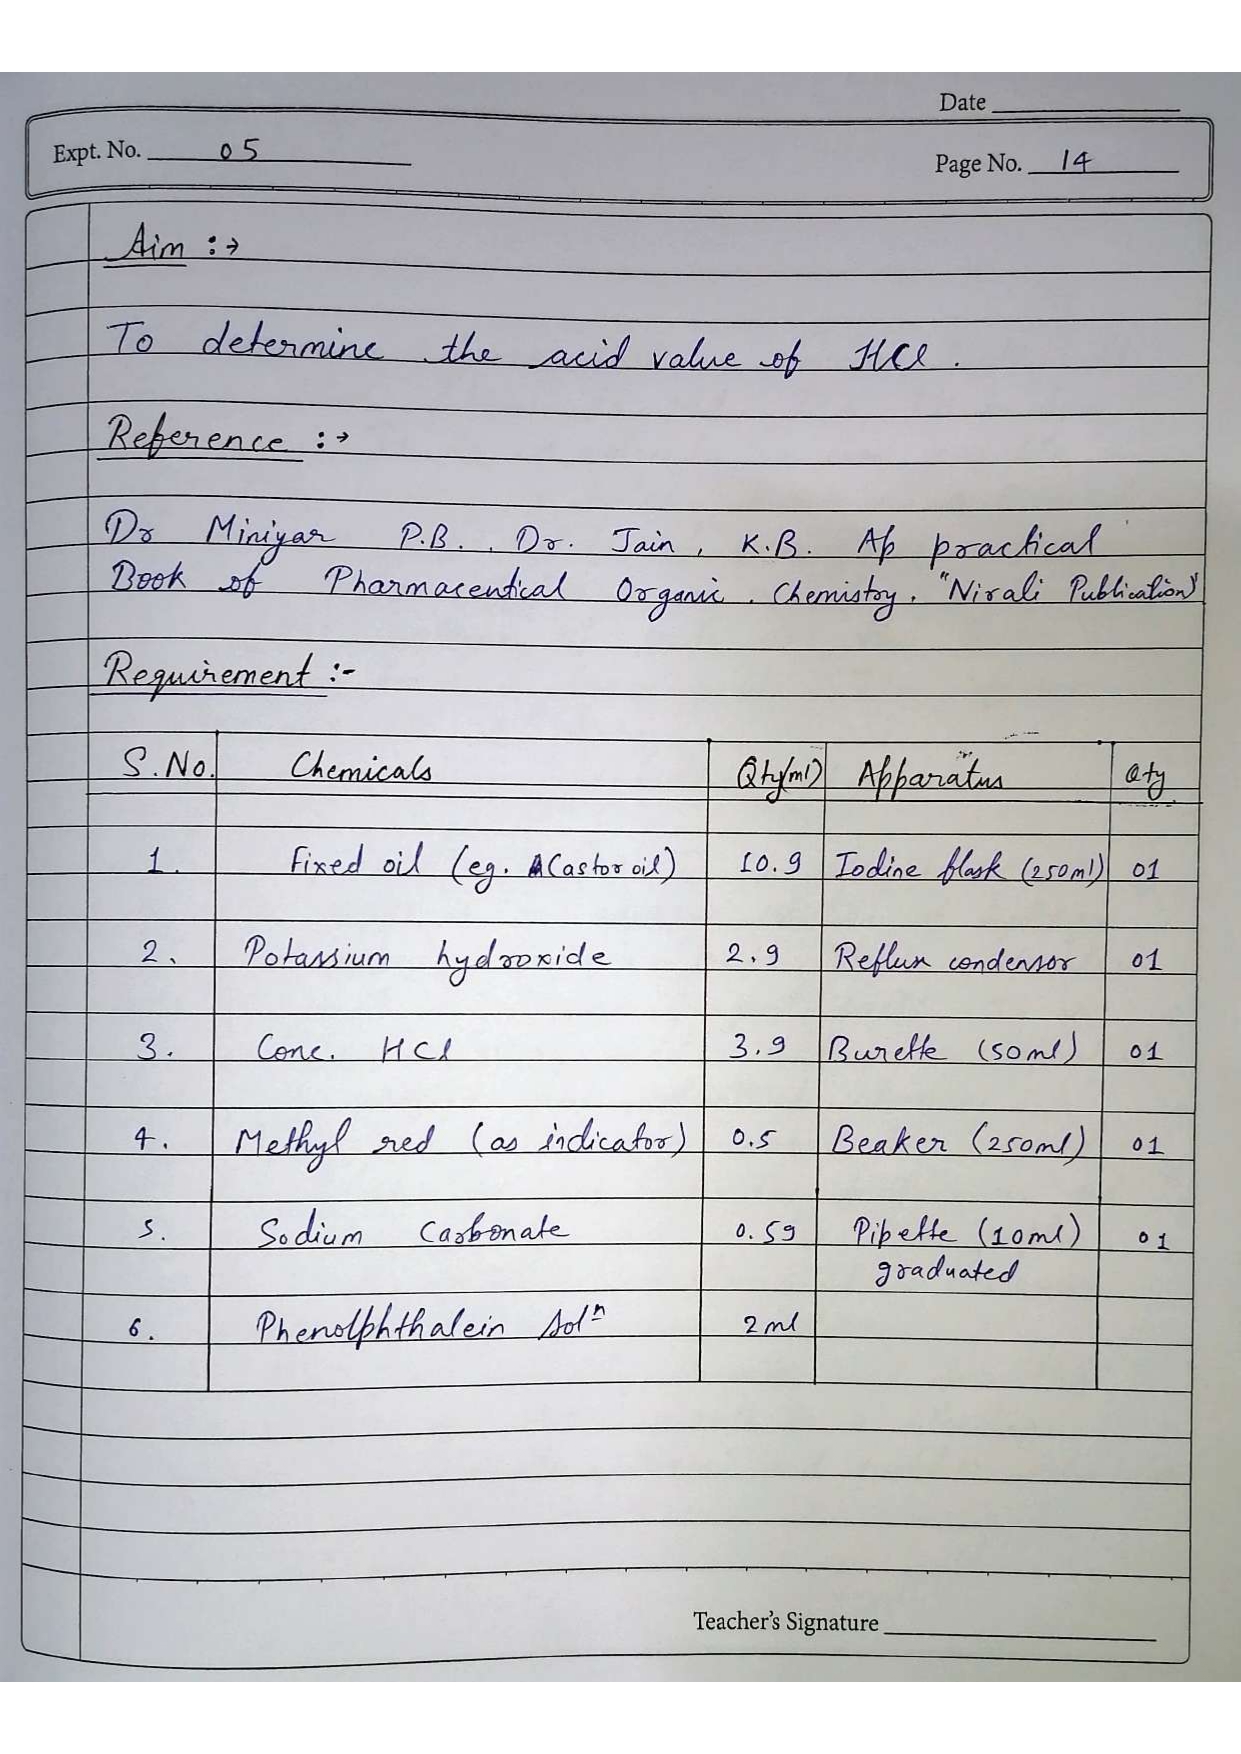 Date
Expt. No. 05
Page No. 14
Aim :→
To determine the acid value of HCl.
Reference :→
Dr Miniyar P.B., Dr. Jain, K.B. Ap practical
Book of Pharmaceutical Organic. Chemistry, "Nirali Publication"
Requirement :-
S.No. Chemicals Qty(ml) Apparatus Qty
1. Fixed oil (eg. Castor oil) 10.9 Iodine flask (250ml) 01
2. Potassium hydroxide 2.9 Reflux condensor 01
3. Conc. HCl 3.9 Burette (50ml) 01
4. Methyl red (as indicator) 0.5 Beaker (250ml) 01
5. Sodium Carbonate 0.59 Pipette (10ml) 01
graduated
6. Phenolphthalein Solⁿ 2ml
Teacher's Signature